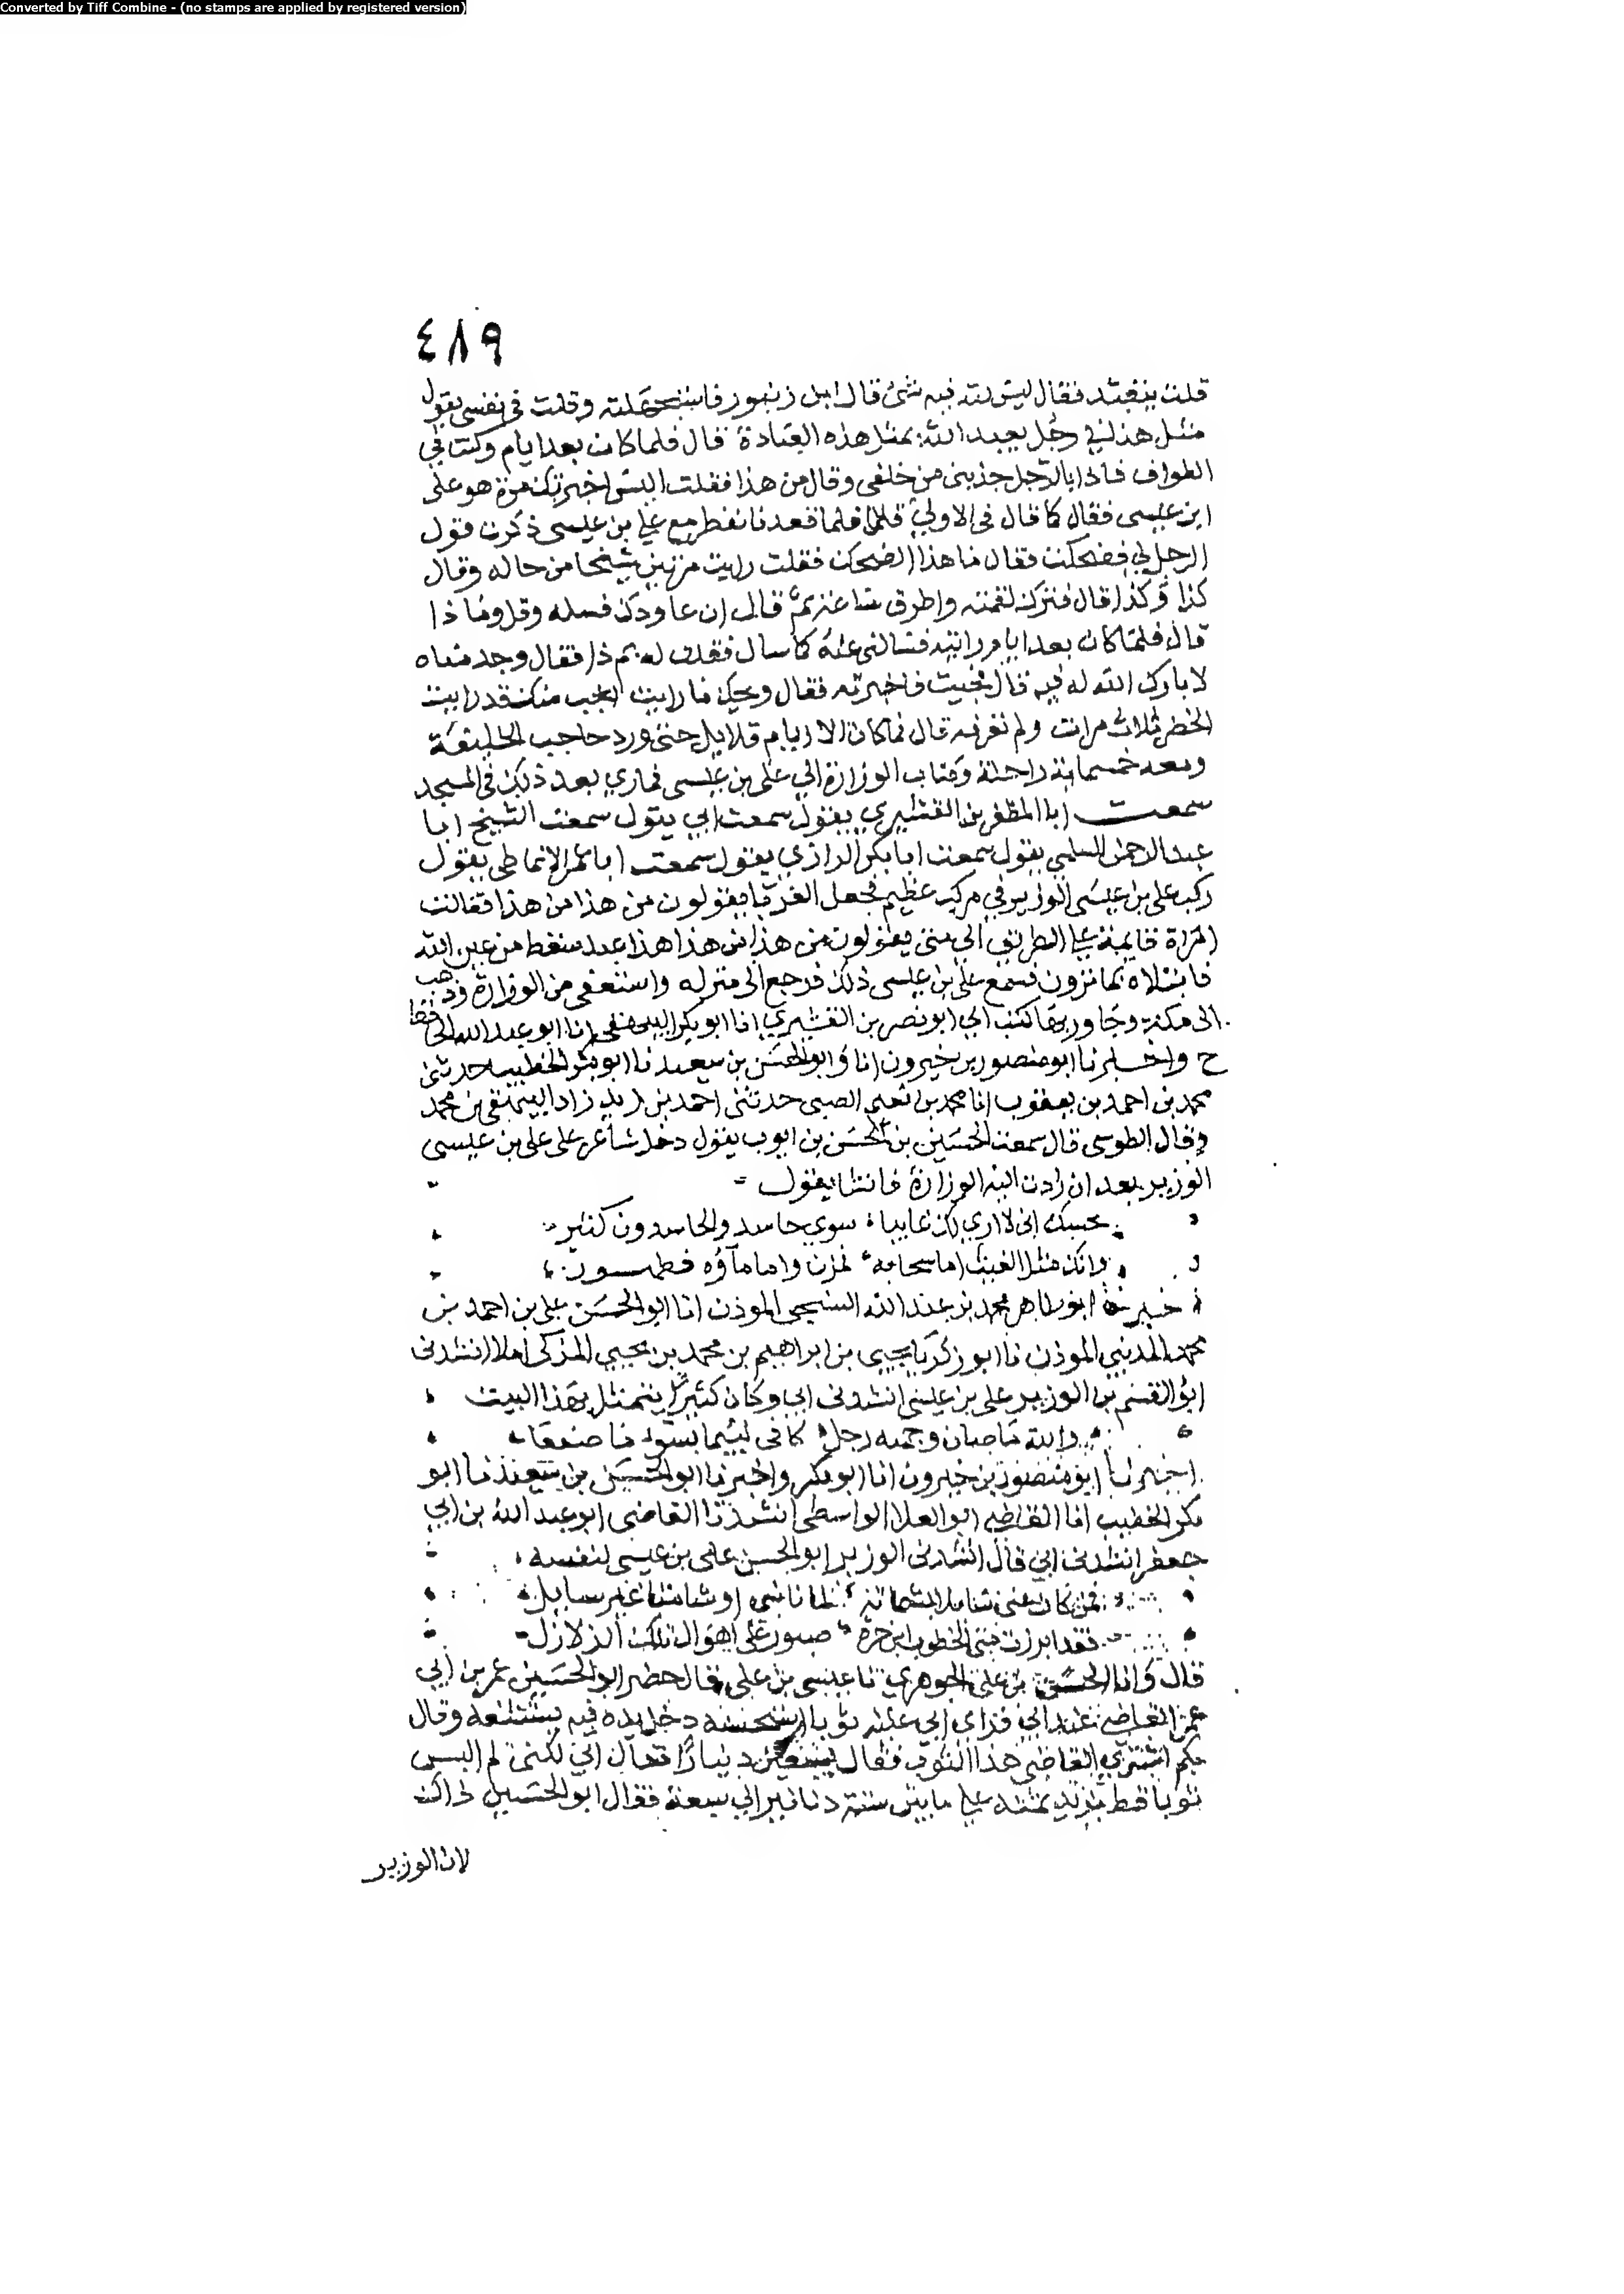 Converted by Tiff Combine - (no stamps are applied by registered version)
٤٨٩
قلت ينفعه فقال ليس لله فيه شئ قال ابن زنبور فاستجهلته وقلت في نفسي يقول
مثل هذا لرجل يعبد الله بمثل هذه العبادة قال فلما كان بعد ايام وكنا في
الطواف فاذا بالرجل جذبني من خلفي وقال من هذا فقلت اليس اخبرتك مرة هو على
ابن عيسى فقال كما قال في الاولى قال فلما قعدنا نفطر مع علي بن عيسى ذكرت قول
الرجل لي فضحكت فقال ما هذا الضحك فقلت رايت مرتين شيخا من حاله وقال
كذا وكذا قال فترك لقمته واطرق ساعة ثم قال ان عاودك فسله وقل وماذا
قال فلما كان بعد ايام رايته فسالني عنه كما سال فقلت له ثم ذا فقال وجد مناه
لا بارك الله له فيه قال فجيت فاخبرته فقال ويحك ما رايت اعجب منك قد رايت
الخضر ثلاث مرات ولم تعرفه قال فما كان الا ايام قلايل حتى ورد حاجب الخليفة
ومعه خمسماية راحلة وكتاب الوزارة الي على بن عيسى فما رى بعد ذلك في المسجد
سمعت ابا المظفر بن القشيري يقول سمعت ابي يقول سمعت الشيخ ابا
عبد الرحمن السلمي يقول سمعت ابا بكر الرازي يقول سمعت ابا عمر الانماطي يقول
ركب على بن عيسى الوزير في مركب عظيم فجعل الغربا يقولون من هذا من هذا فقالت
امراة قايمة على الطريق الى متى يقولون من هذا من هذا هذا عبد سقط من عين الله
فابتلاه بما ترون فسمع على بن عيسى ذلك فرجع الى منزله واستعفى من الوزارة وذهب
الى مكة وجاور بها كتب الي ابو نصر بن القشيري انا ابو بكر البيهقي انا ابو عبد الله الحافظ
ح واخبرنا ابو منصور بن خيرون انا وابو الحسن بن سعيد نا ابو بكر الخطيب حدثني
محمد بن احمد بن يعقوب انا محمد بن نعيم الضبي حدثني احمد بن زاد البيهقي بن محمد
وقال الطوسي قال سمعت الحسين بن الحسن بن ايوب يقول دخل شاعر على على بن عيسى
الوزير بعد ان ردت اليه الوزارة فانشا يقول
بحسبك اني لا ارى لك عايبا سوي حاسد والحاسدون كثير
وانك مثل الغيث اما سحابه فمزن واما ماؤه فطهور
اخبرنا ابو طاهر محمد بن عبد الله السنجي الموذن انا ابو الحسن علي بن احمد بن
محمد المديني الموذن نا ابو زكريا يحيى بن ابراهيم بن محمد بن يحيى المزكى املا انشدني
ابو القسم بن الوزير على بن عيسى انشدني ابي وكان كثيرا يتمثل بهذا البيت
والله ما صان وجهه رجل كافى لئيما بسوء ما صنعا
اخبرنا ابو منصور بن خيرون انا ابو بكر واخبرنا ابو الحسن بن سعيد نا ابو
بكر الخطيب انا القاضي ابو العلا الواسطي انشدنا القاضي ابو عبد الله بن ابي
جعفر انشدني ابي قال انشدني الوزير ابو الحسن على بن عيسى لنفسه
فمن كان عني سايلا بشماتة لما نابني او شامتا غير سايل
فقد ابرزت مني الخطوب ابن حرة صبور على اهوال تلك الزلازل
قال وانا الحسن بن علي الجوهري نا عيسى بن علي قال حضر ابو الحسين عمر بن ابي
عمر القاضي عند ابي فراى ابي عليه ثوبا استحسنه دخل يده فيه يستشفه وقال
بكم اشترى القاضي هذا الثوب فقال بسبعين دينارا فقال ابي لكني لم البس
ثوبا قط يزيد ثمنه علي ما بين ستة دنانير الي سبعة فقال ابو الحسين ذاك
لان الوزير